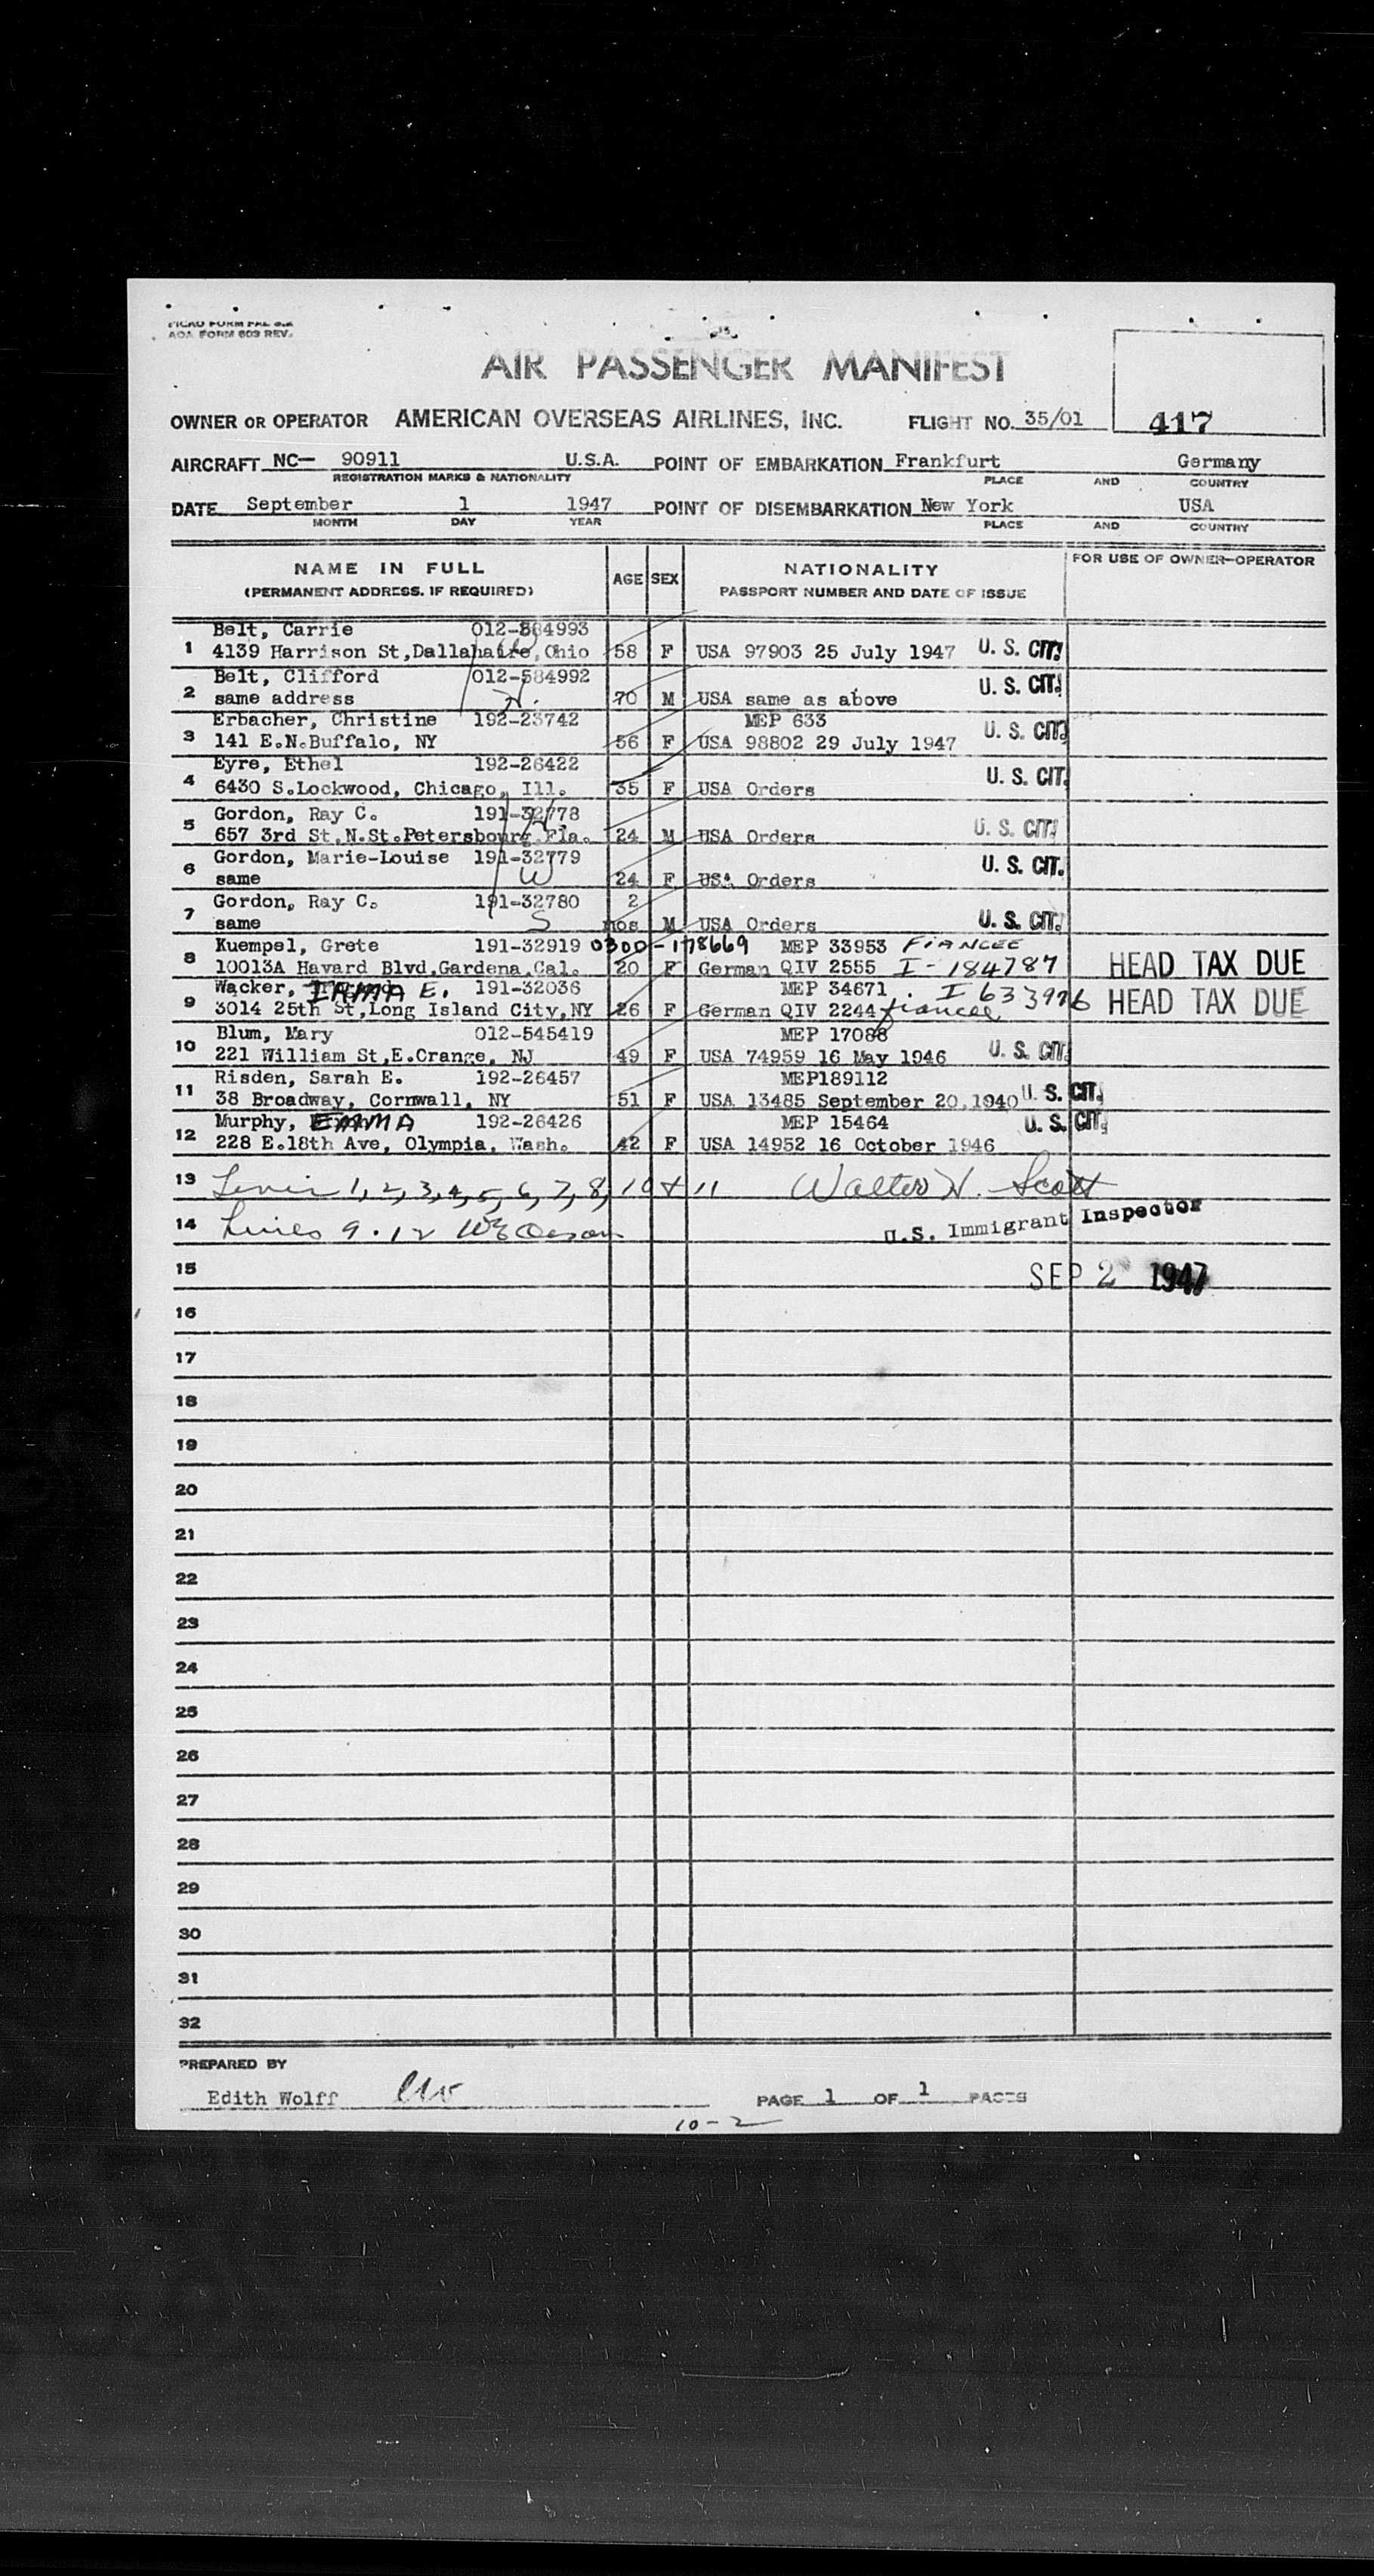 AOA FORM 603 REV.
AIR PASSENGER MANIFEST
OWNER OR OPERATOR AMERICAN OVERSEAS AIRLINES, INC. FLIGHT NO. 35/01
417
AIRCRAFT NC— 90911 U.S.A. POINT OF EMBARKATION Frankfurt Germany
REGISTRATION MARKS & NATIONALITY PLACE AND COUNTRY
DATE September 1 1947 POINT OF DISEMBARKATION New York USA
MONTH DAY YEAR PLACE AND COUNTRY
NAME IN FULL AGE SEX NATIONALITY FOR USE OF OWNER-OPERATOR
(PERMANENT ADDRESS, IF REQUIRED) PASSPORT NUMBER AND DATE OF ISSUE
Belt, Carrie 012-584993
1 4139 Harrison St, Ohio 58 F USA 97903 25 July 1947 U. S. CIT.
Belt, Clifford 012-584992
2 same address H. 70 M USA same as above U. S. CIT.
Erbacher, Christine 192-23742 MEP 633
3 141 E.N.Buffalo, NY 56 F USA 98802 29 July 1947 U. S. CIT.
Eyre, Ethel 192-26422
4 6430 S.Lockwood, Chicago, Ill. 35 F USA Orders U. S. CIT.
Gordon, Ray C. 191-32778
5 657 3rd St,N.St.Petersbourg Fla. 24 M USA Orders U. S. CIT.
Gordon, Marie-Louise 191-32779
6 same W 24 F USA Orders U. S. CIT.
Gordon, Ray C. 191-32780 2
7 same S mos M USA Orders U. S. CIT.
Kuempel, Grete 191-32919 0300-178669 MEP 33953 FIANCEE
8 10013A Havard Blvd,Gardena,Cal. 20 F German QIV 2555 I-184787 HEAD TAX DUE
Wacker, IRMA E. 191-32036 MEP 34671 I 633976
9 3014 25th St,Long Island City,NY 26 F German QIV 2244 fiancee HEAD TAX DUE
Blum, Mary 012-545419 MEP 17088
10 221 William St,E.Orange, NJ 49 F USA 74959 16 May 1946 U. S. CIT.
Risden, Sarah E. 192-26457 MEP189112
11 38 Broadway, Cornwall, NY 51 F USA 13485 September 20,1940 U. S. CIT.
Murphy, EMMA 192-26426 MEP 15464 U. S. CIT.
12 228 E.18th Ave, Olympia, Wash. 42 F USA 14952 16 October 1946
13 Lines 1, 2, 3, 4, 5, 6, 7, 8, 10 + 11 Walter H. Scott
14 Lines 9 · 12 U.S. Immigrant Inspector
15 SEP 2 1947
16
17
18
19
20
21
22
23
24
25
26
27
28
29
30
31
32
PREPARED BY
Edith Wolff ew PAGE 1 OF 1 PAGES
10-2